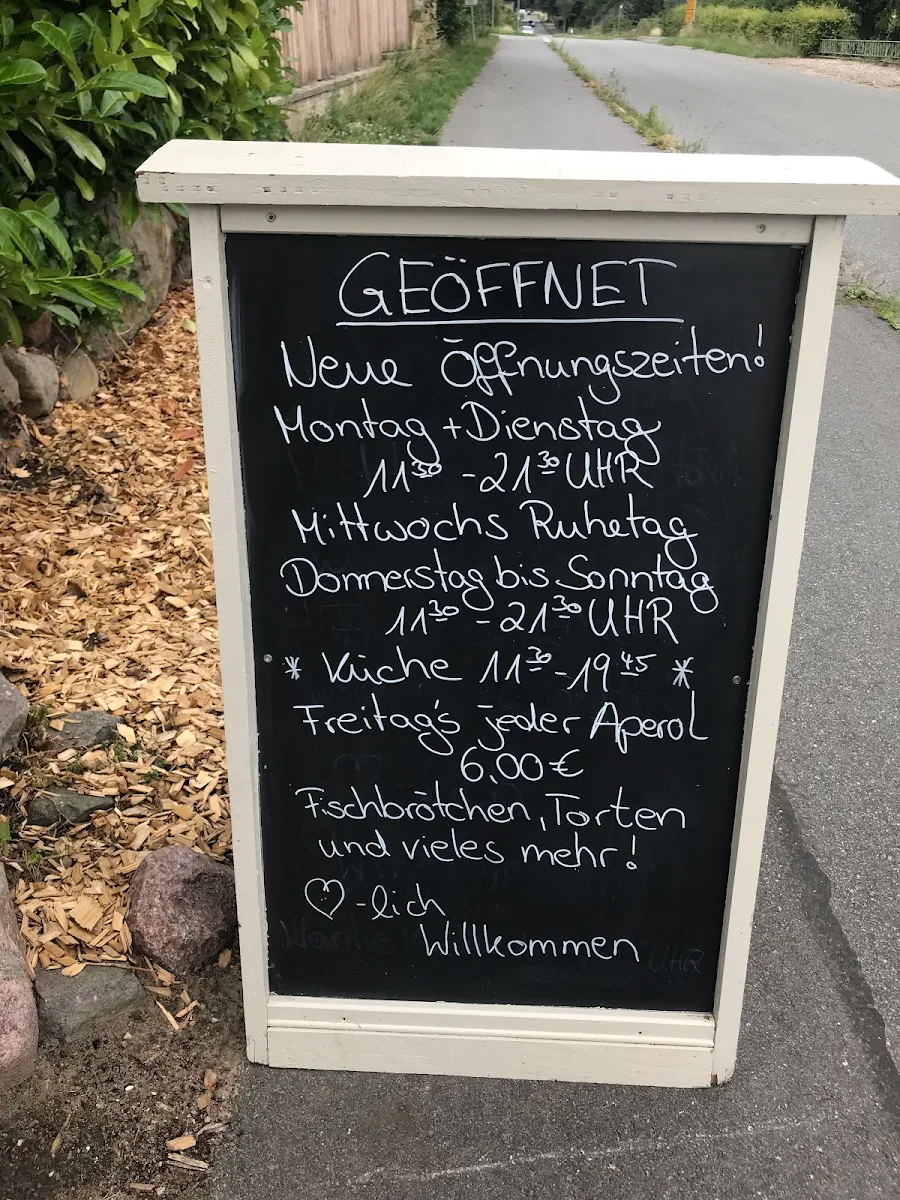 GEÖFFNET
Neue Öffnungszeiten!
Montag + Dienstag
11³⁰ - 21³⁰ UHR
Mittwochs Ruhetag
Donnerstag bis Sonntag
11³⁰ - 21³⁰ UHR
* Küche 11³⁰ - 19⁴⁵ *
Freitag's jeder Aperol
6,00€
Fischbrötchen, Torten
und vieles mehr!
♡-lich
Willkommen
Warme
UHR